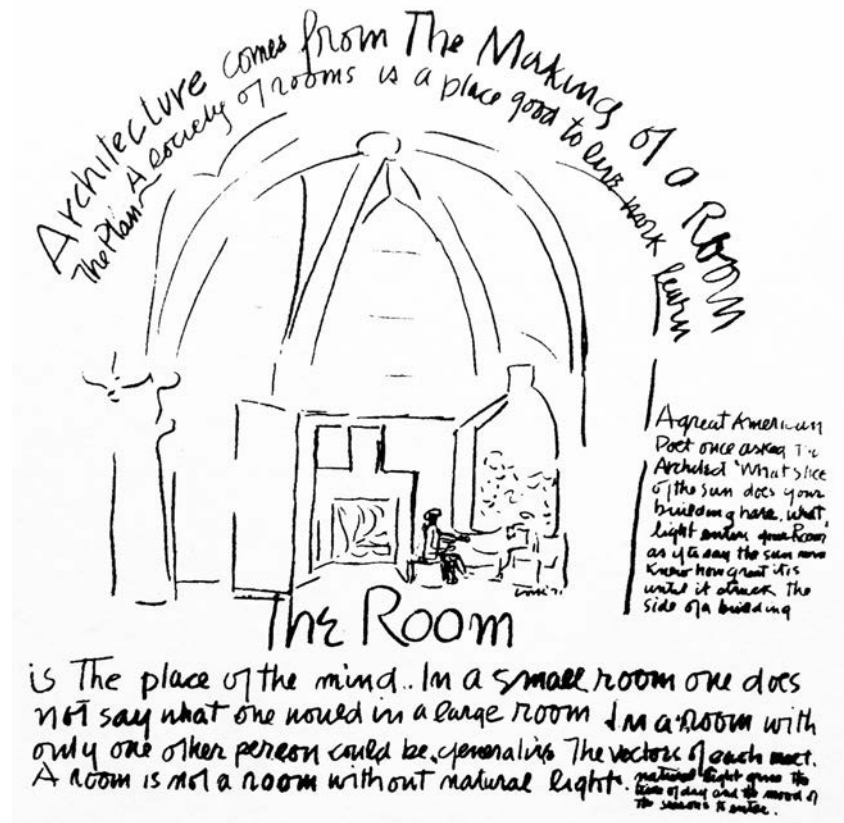 Architecture comes from The Making of a Room
The Plan A society of rooms is a place good to live work learn
A great American
Poet once asked The
Architect 'What slice
of the sun does your
building have, what
light enters your Room
as if to say the sun never
knew how great it is
until it struck the
side of a building
The Room
is The place of the mind.. In a small room one does
not say what one would in a large room In a room with
only one other person could be generative The vectors of each meet.
A room is not a room without natural light.
natural light gives the
time of day and the mood of
the seasons to enter.